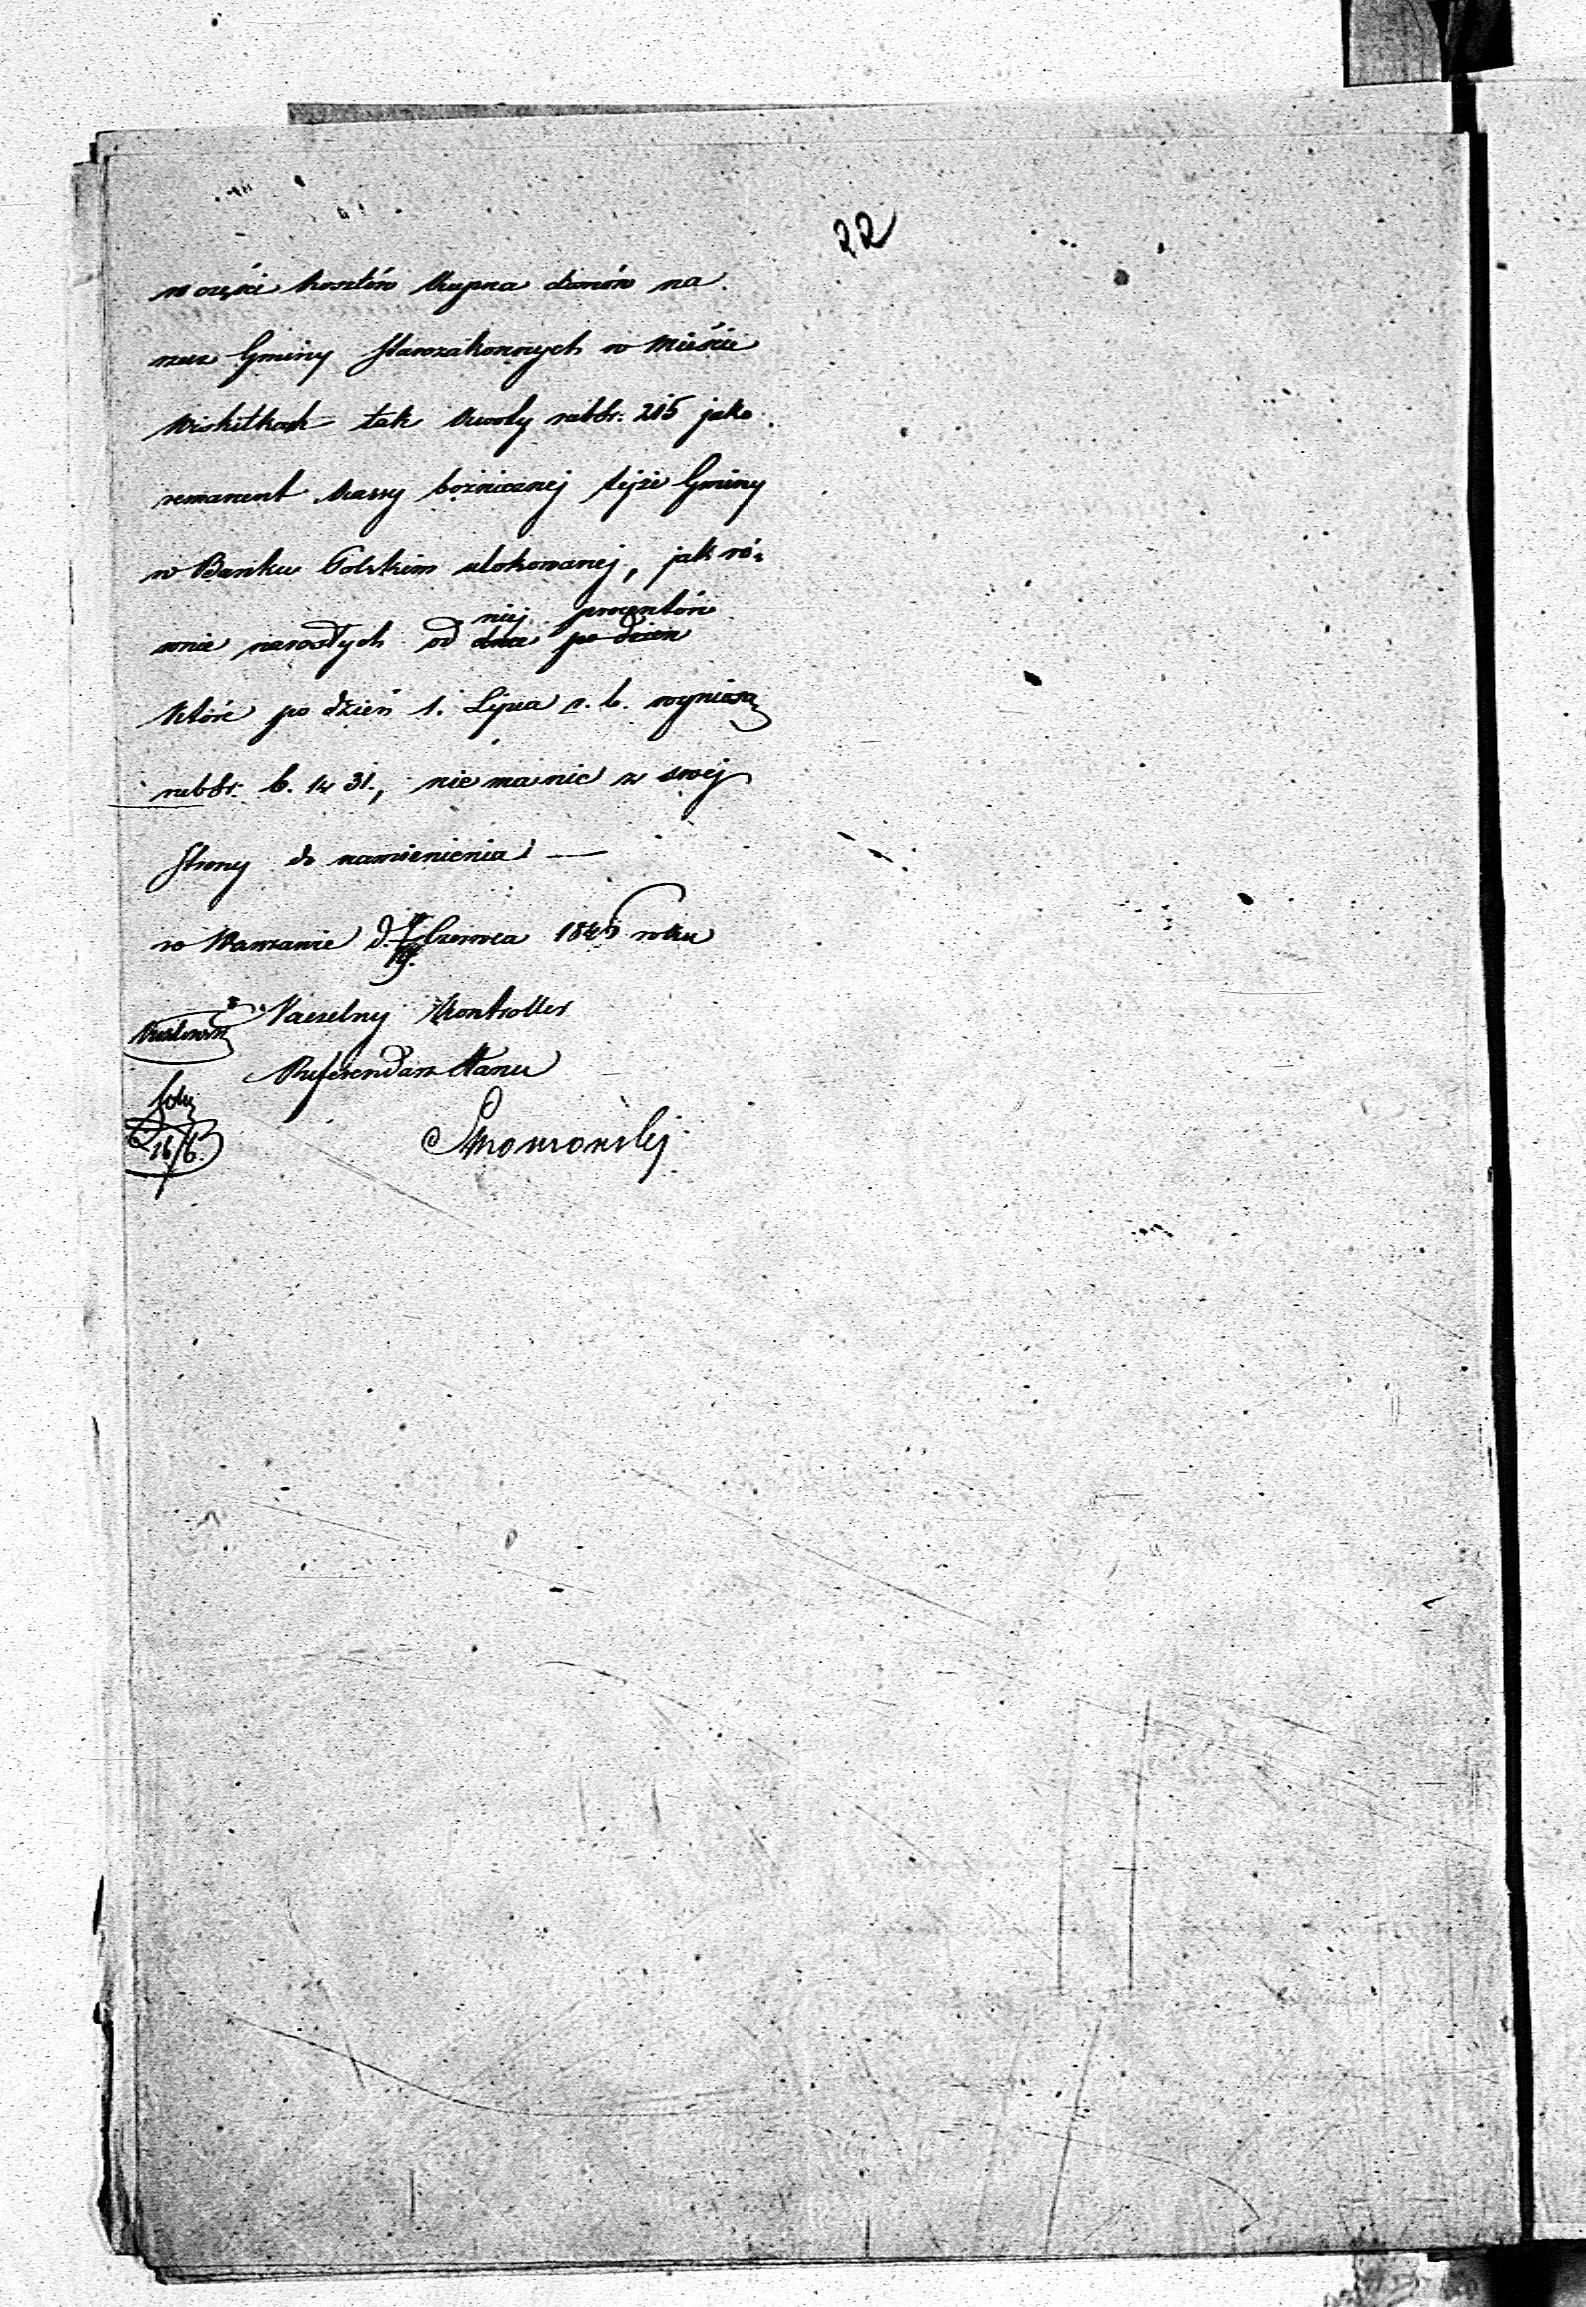 22
w części kosztów kupna domów na
rzecz Gminy Starozakonnych w Mieście
Wiskitkach tak kwoty rubsr. 215 jako
remanent kassy bożniczej tejże Gminy
w Banku Polskim ulokowanej, jak ró-
niej procentów
wnie narosłych od dnia po dzien
które po dzień 1. Lipca r. b. wyniosą
rubsr. 6. k 31., nie ma nic z swej
strony do namienienia —
w Warszawie d. Czerwca 1845 roku
Naczelny Kontroller
Referendarz Stanu
16/6.